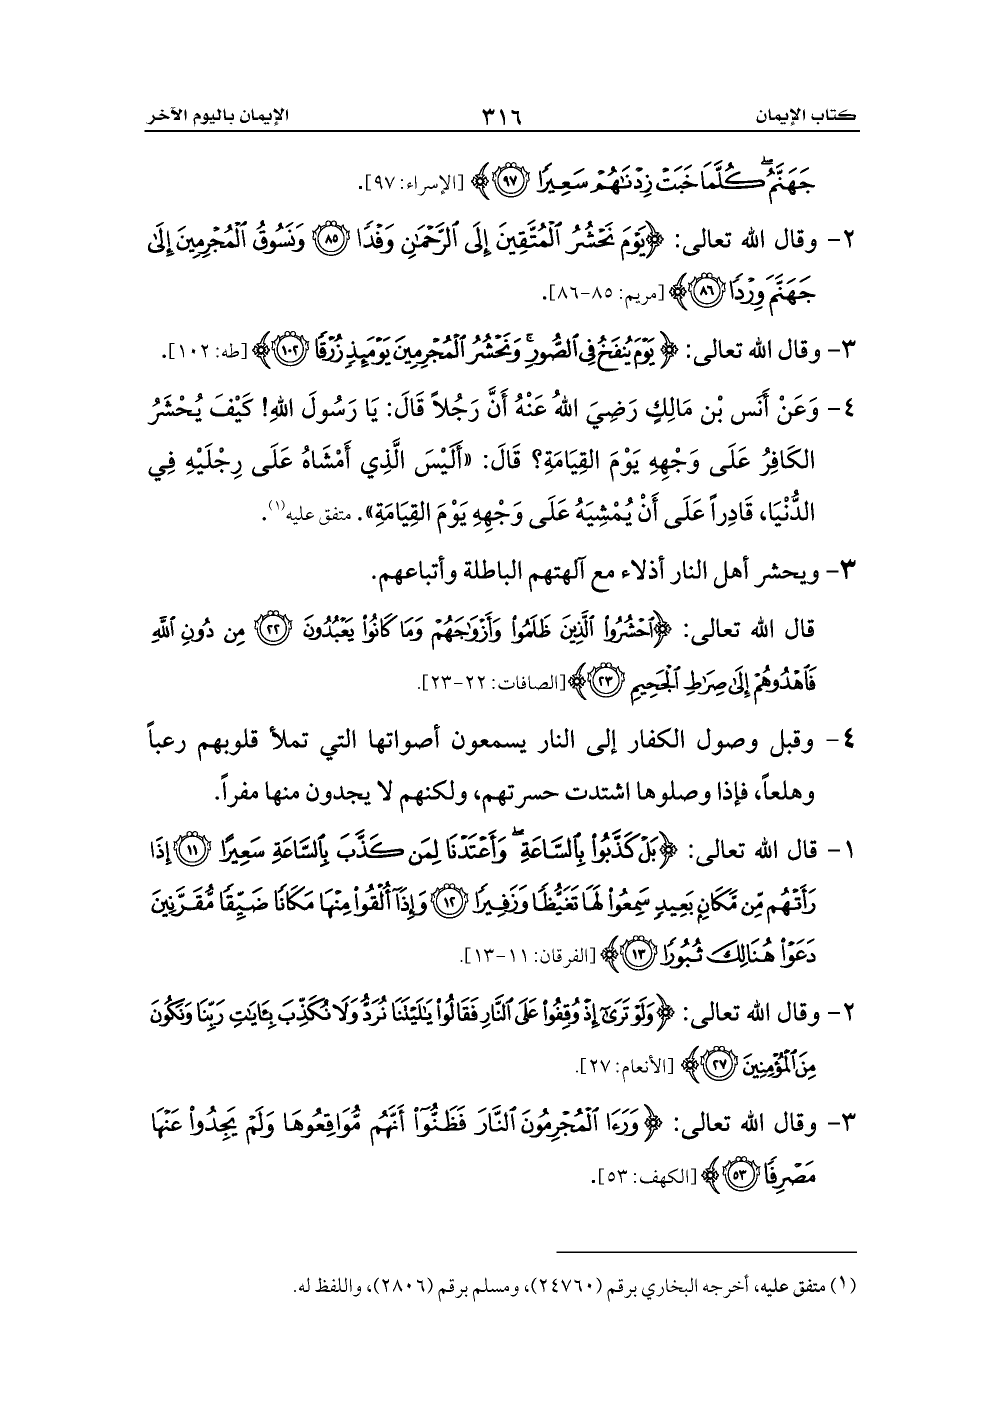 كتاب الإيمان ٣١٦ الإيمان باليوم الآخر
جَهَنَّمُ ۖ كُلَّمَا خَبَتْ زِدْنَٰهُمْ سَعِيرًا ﴿٩٧﴾ ﴾ [الإسراء: ٩٧].
٢- وقال الله تعالى: ﴿ يَوْمَ نَحْشُرُ ٱلْمُتَّقِينَ إِلَى ٱلرَّحْمَٰنِ وَفْدًا ﴿٨٥﴾ وَنَسُوقُ ٱلْمُجْرِمِينَ إِلَىٰ
جَهَنَّمَ وِرْدًا ﴿٨٦﴾ ﴾ [مريم: ٨٥-٨٦].
٣- وقال الله تعالى: ﴿ يَوْمَ يُنفَخُ فِى ٱلصُّورِ ۚ وَنَحْشُرُ ٱلْمُجْرِمِينَ يَوْمَئِذٍ زُرْقًا ﴿١٠٢﴾ ﴾ [طه: ١٠٢].
٤- وَعَنْ أَنَس بْن مَالِكٍ رَضِيَ اللهُ عَنْهُ أَنَّ رَجُلاً قَالَ: يَا رَسُولَ اللهِ! كَيْفَ يُحْشَرُ
الكَافِرُ عَلَى وَجْهِهِ يَوْمَ القِيَامَةِ؟ قَالَ: «أَلَيْسَ الَّذِي أَمْشَاهُ عَلَى رِجْلَيْهِ فِي
الدُّنْيَا، قَادِراً عَلَى أَنْ يُمْشِيَهُ عَلَى وَجْهِهِ يَوْمَ القِيَامَةِ». متفق عليه(١).
٣- ويحشر أهل النار أذلاء مع آلهتهم الباطلة وأتباعهم.
قال الله تعالى: ﴿ ٱحْشُرُوا۟ ٱلَّذِينَ ظَلَمُوا۟ وَأَزْوَٰجَهُمْ وَمَا كَانُوا۟ يَعْبُدُونَ ﴿٢٢﴾ مِن دُونِ ٱللَّهِ
فَٱهْدُوهُمْ إِلَىٰ صِرَٰطِ ٱلْجَحِيمِ ﴿٢٣﴾ ﴾ [الصافات: ٢٢-٢٣].
٤- وقبل وصول الكفار إلى النار يسمعون أصواتها التي تملأ قلوبهم رعباً
وهلعاً، فإذا وصلوها اشتدت حسرتهم، ولكنهم لا يجدون منها مفراً.
١- قال الله تعالى: ﴿ بَلْ كَذَّبُوا۟ بِٱلسَّاعَةِ ۖ وَأَعْتَدْنَا لِمَن كَذَّبَ بِٱلسَّاعَةِ سَعِيرًا ﴿١١﴾ إِذَا
رَأَتْهُم مِّن مَّكَانٍۭ بَعِيدٍ سَمِعُوا۟ لَهَا تَغَيُّظًا وَزَفِيرًا ﴿١٢﴾ وَإِذَآ أُلْقُوا۟ مِنْهَا مَكَانًا ضَيِّقًا مُّقَرَّنِينَ
دَعَوْا۟ هُنَالِكَ ثُبُورًا ﴿١٣﴾ ﴾ [الفرقان: ١١-١٣].
٢- وقال الله تعالى: ﴿ وَلَوْ تَرَىٰٓ إِذْ وُقِفُوا۟ عَلَى ٱلنَّارِ فَقَالُوا۟ يَٰلَيْتَنَا نُرَدُّ وَلَا نُكَذِّبَ بِـَٔايَٰتِ رَبِّنَا وَنَكُونَ
مِنَ ٱلْمُؤْمِنِينَ ﴿٢٧﴾ ﴾ [الأنعام: ٢٧].
٣- وقال الله تعالى: ﴿ وَرَءَا ٱلْمُجْرِمُونَ ٱلنَّارَ فَظَنُّوٓا۟ أَنَّهُم مُّوَاقِعُوهَا وَلَمْ يَجِدُوا۟ عَنْهَا
مَصْرِفًا ﴿٥٣﴾ ﴾ [الكهف: ٥٣].
(١) متفق عليه، أخرجه البخاري برقم (٢٤٧٦٠)، ومسلم برقم (٢٨٠٦)، واللفظ له.